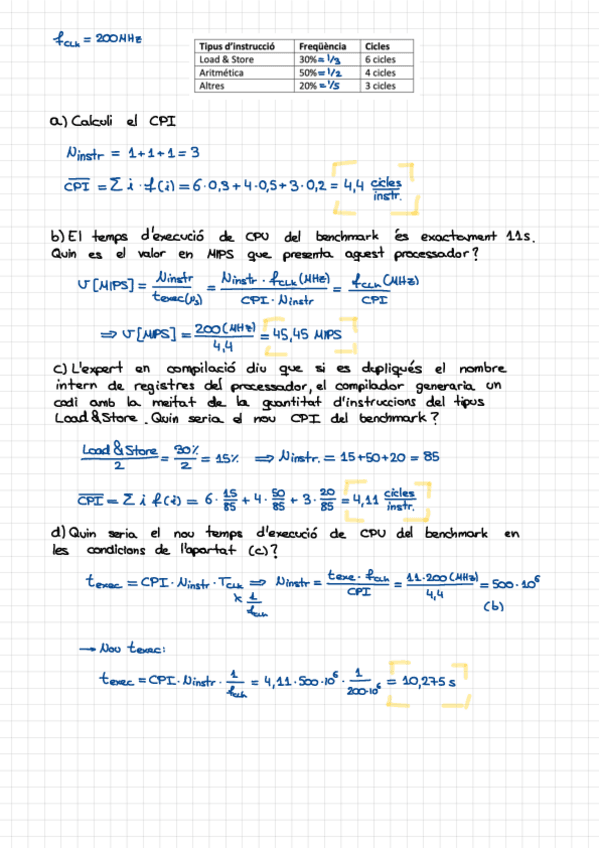 f_CLK = 200MHz
Tipus d'instrucció Freqüència Cicles
Load & Store 30% = 1/3 6 cicles
Aritmética 50% = 1/2 4 cicles
Altres 20% = 1/5 3 cicles
a) Calculi el CPI
Ninstr = 1+1+1 = 3
CPI = Σ i · f(i) = 6·0,3 + 4·0,5 + 3·0,2 = 4,4 cicles/instr.
b) El temps d'execució de CPU del benchmark és exactament 11s.
Quin es el valor en MIPS que presenta aquest processador?
V[MIPS] = Ninstr / texec(μs) = Ninstr · f_CLK (MHz) / CPI · Ninstr = f_CLK (MHz) / CPI
⇒ V[MIPS] = 200 (MHz) / 4,4 = 45,45 MIPS
c) L'expert en compilació diu que si es dupliqués el nombre
intern de registres del processador, el compilador generaria un
codi amb la meitat de la quantitat d'instruccions del tipus
Load & Store. Quin seria el nou CPI del benchmark?
Load & Store / 2 = 30% / 2 = 15% ⇒ Ninstr. = 15+50+20 = 85
CPI = Σ i f(i) = 6 · 15/85 + 4 · 50/85 + 3 · 20/85 = 4,11 cicles/instr.
d) Quin seria el nou temps d'execució de CPU del benchmark en
les condicions de l'apartat (c)?
texec = CPI · Ninstr · T_CLK ⇒ Ninstr = texe · f_CLK / CPI = 11·200 (MHz) / 4,4 = 500·10⁶
1/f_CLK (b)
→ Nou texec:
texec = CPI · Ninstr · 1/f_CLK = 4,11·500·10⁶ · 1/200·10⁶ = 10,275 s